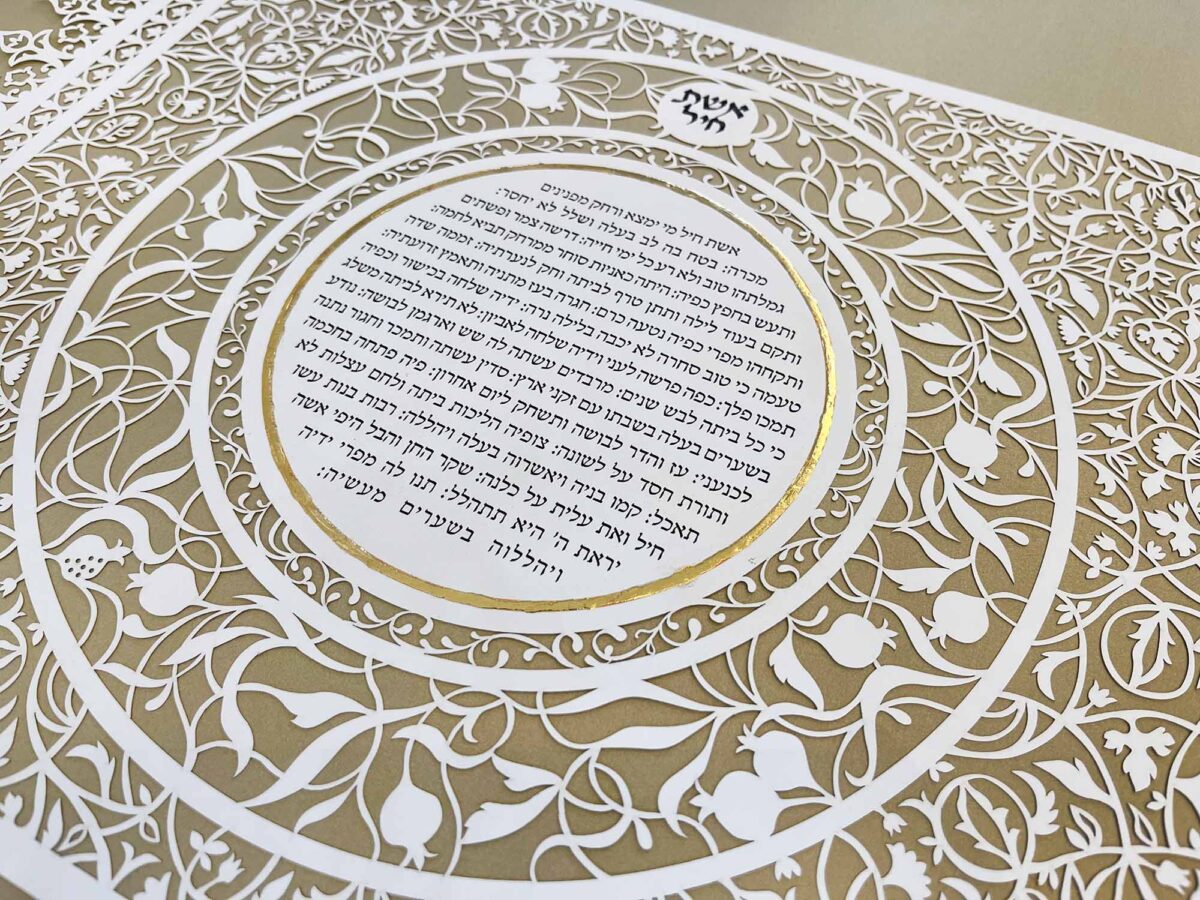 אשת
חיל
אשת חיל מי ימצא ורחק מפנינים
מכרה: בטח בה לב בעלה ושלל לא יחסר:
גמלתהו טוב ולא רע כל ימי חייה: דרשה צמר ופשתים
ותעש בחפץ כפיה: היתה כאניות סוחר ממרחק תביא לחמה:
ותקם בעוד לילה ותתן טרף לביתה וחק לנערתיה: זממה שדה
ותקחהו מפרי כפיה נטעה כרם: חגרה בעז מתניה ותאמץ זרועתיה:
טעמה כי טוב סחרה לא יכבה בלילה נרה: ידיה שלחה בכישור וכפיה
תמכו פלך: כפה פרשה לעני וידיה שלחה לאביון: לא תירא לביתה משלג
כי כל ביתה לבש שנים: מרבדים עשתה לה שש וארגמן לבושה: נודע
בשערים בעלה בשבתו עם זקני ארץ: סדין עשתה ותמכר וחגור נתנה
לכנעני: עז והדר לבושה ותשחק ליום אחרון: פיה פתחה בחכמה
ותורת חסד על לשונה: צופיה הליכות ביתה ולחם עצלות לא
תאכל: קמו בניה ויאשרוה בעלה ויהללה: רבות בנות עשו
חיל ואת עלית על כלנה: שקר החן והבל היפי אשה
יראת ה' היא תתהלל: תנו לה מפרי ידיה
ויהללוה בשערים מעשיה: